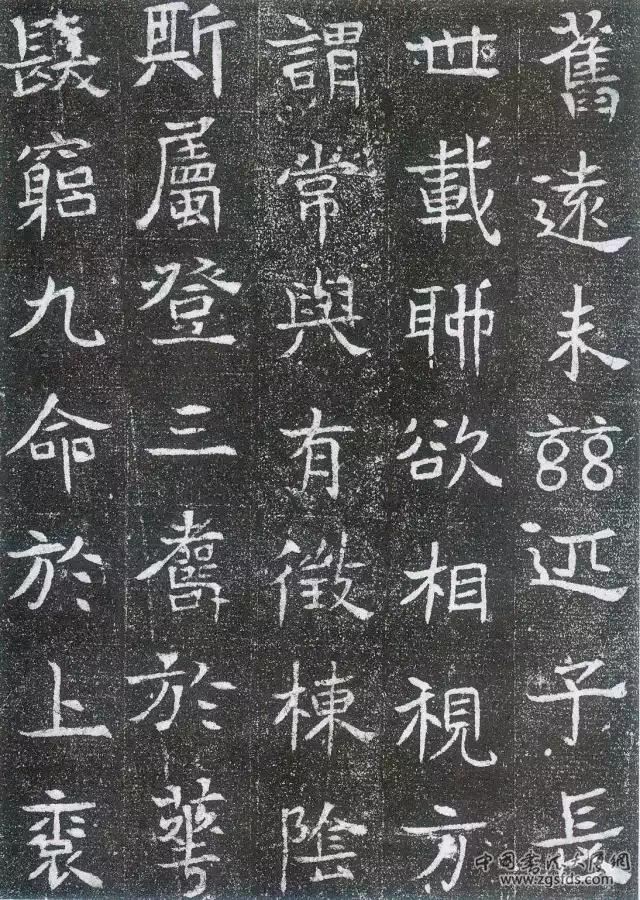 舊遠未兹近子長
世載聯欲相視方
謂常與有徵棟陰
斯屬登三於華
窮九命於上衮
中国书法大师网
www.zgsfds.com